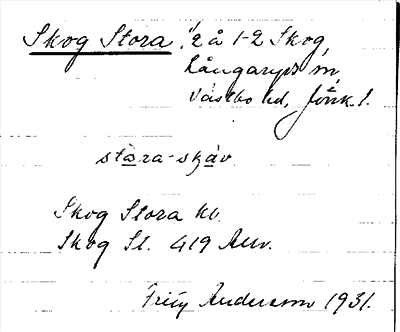 Skog Stora 1/2 å 1-2 Skog,
Långaryds sn,
Västbo hd, Jönk. l.
stara-skav
Skog Stora kv.
Skog St. 419 Avv.
Andersson 1931.